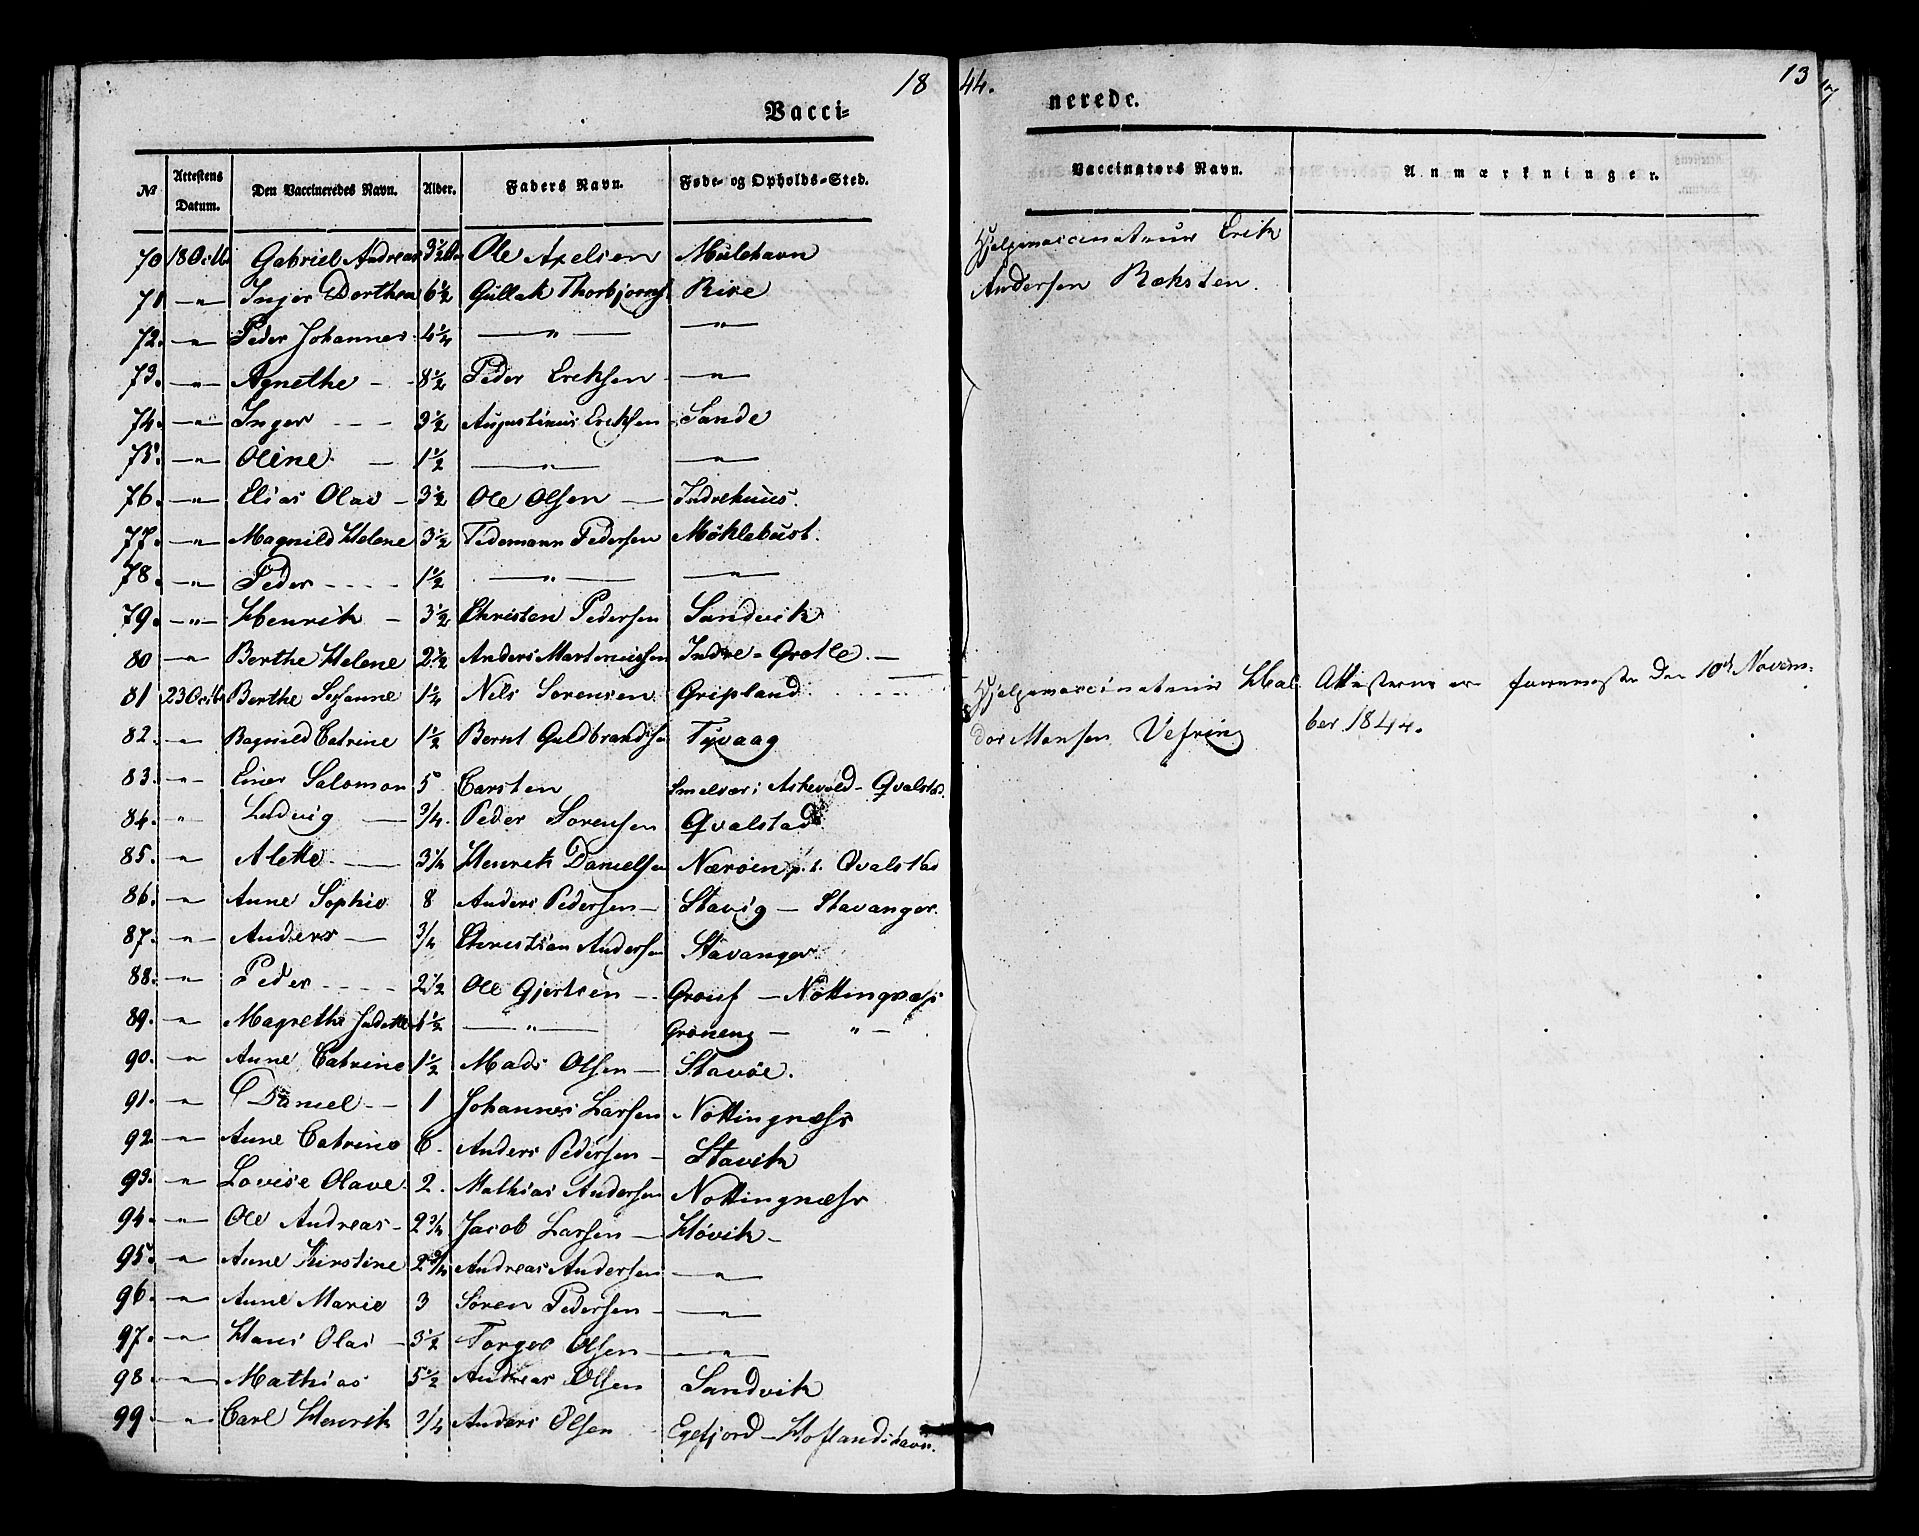 1844.
13
Vacci=nerede.
№ | Attestens Datum. | Den Vaccineredes Navn. | Alder. | Faders Navn. | Føde- og Opholds-Sted. | Vaccinatørs Navn. | Anmærkninger.
70 18 Octb. Gabriel Andreas 3½ Ole Axelsen Mulehavn
71 -"- Inger Dorthea 6½ Gullak Thorbjørns. Rise
72. -"- Peder Johannes 4¼ -"- -"-
73. -"- Agnethe 8½ Peder Eriksen -"-
74. -"- Inger 3½ Augustinus Eriksen Sande
75. -"- Oline 1½ -"- -"-
76. -"- Elias Olai 3½ Ole Olsen Indrehuus.
77. -"- Magnild Helene 3½ Tidemann Pedersen Møklebust.
78. -"- Peder 1½ -"- -"-
79. -"- Henrik 3½ Christen Pedersen Sandvik
80 -"- Berthe Helene 2½ Anders Martenussen Indre-Grotle
81 23 Octb. Berthe Susanne 1¼ Nils Sorensen Gripland
82. -"- Ragnild Catrine 1½ Bernt Guldbrandsen Tyvaag
83. -"- Einer Salomon 5 Carsten Smelvær i Askevold - Qvalstad.
84. " Ludvig ¾. Peder Sorensen Qvalstad
85. " Alette 3¼ Henrik Danielsen Nærøien p. t. Qvalstad
86. -"- Anne Sophie 8 Anders Pedersen Stavig - Stavanger.
87. -"- Anders ¾ Christian Andersen Stavanger
88. -"- Peder 2½ Ole Gjertsen - Nøttingnæss
89. -"- Magrethe Judithe 1½ -"- Grøneng - " -
90. -"- Anne Catrine 1½ Mads Olsen Stavøe.
91. -"- Daniel 1 Johannes Larsen Nøttingnæss
92 -"- Anne Catrine 6. Anders Pedersen Stavik
93. -"- Lovise Olave 2. Mathias Andersen Nøttingnæss
94. -"- Ole Andreas 2¾ Jacob Larsen Høvik
95. -"- Anne Kirstine 2¾ Andreas Andersen -"-
96. -"- Anne Marie 3 Søren Pedersen -"-
97. -"- Hans Olai 3½ Torger Olsen -"-
98. -"- Mathias 5½ Andreas Olsen Sandvik
99 -"- Carl Henrik ¾ Anders Olsen Egefjord - Hoflandshavn.
Hjelpevaccinateur Erik
Andersen Ræksten.
Hjelpevaccinateur Hal
dor Monsen Vefring
Attesterne er foreviste den 10de Novem-
ber 1844.